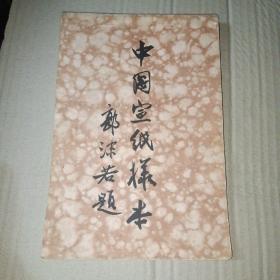 中国宣纸样本
郭沫若题